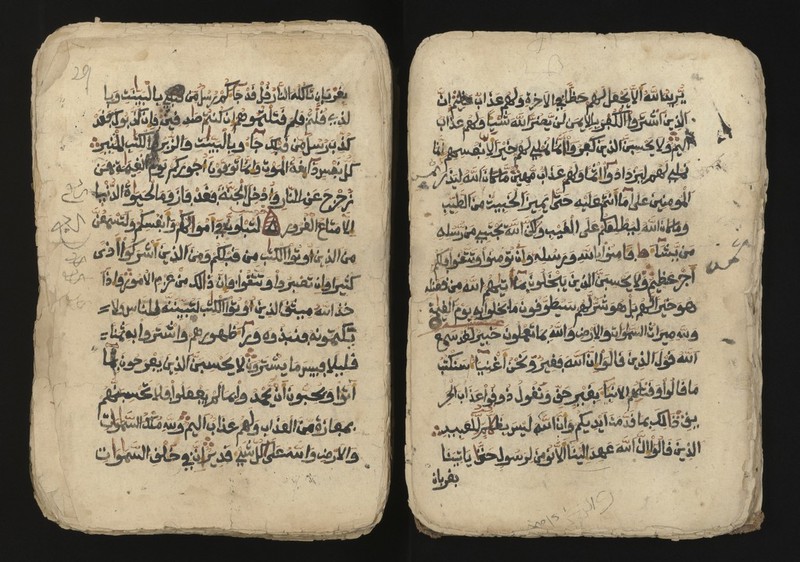 يريد الله ألا يجعل لهم حظا في الاخرة ولهم عذاب عظيم إن
الذين اشتروا الكفر بالايمن لن يضروا الله شيئا ولهم عذاب
اليم ولا يحسبن الذين كفروا أنما نملي لهم خير لأنفسهم إنما
نملي لهم ليزدادوا إثما ولهم عذاب مهين ما كان الله ليذر
المومنين على ما أنتم عليه حتى يميز الخبيث من الطيب
وما كان الله ليطلعكم على الغيب ولكن الله يجتبي من رسله
من يشاء فامنوا بالله ورسله وإن تومنوا وتتقوا فلكم
أجر عظيم ولا يحسبن الذين يبخلون بما اتيهم الله من فضله
هو خيرا لهم بل هو شر لهم سيطوقون ما بخلوا به يوم القيمة
ولله ميراث السموات والارض والله بما تعملون خبير لقد سمع
الله قول الذين قالوا إن الله فقير ونحن أغنياء سنكتب
ما قالوا وقتلهم الأنبياء بغير حق ونقول ذوقوا عذاب الحر
يق ذالك بما قدمت أيديكم وأن الله ليس بظلام للعبيد
الذين قالوا إن الله عهد إلينا ألا نومن لرسول حتى ياتينا
بقربان
29
بقربان تاكله النار قل قد جاءكم رسل من قبلي بالبينت وبا
لذي قلتم فلم قتلتموهم إن كنتم صدقين فإن كذبوك فقد
كذب رسل من قبلك جاءو بالبينت والزبر والكتب المنير
كل نفس ذائقة الموت وإنما توفون أجوركم يوم القيمة فمن
زحزح عن النار وأدخل الجنة فقد فاز وما الحيوة الدنيا
إلا متاع الغرور لتبلون في أموالكم وأنفسكم ولتسمعن
من الذين اوتوا الكتب من قبلكم ومن الذين أشركوا أذى
كثيرا وإن تصبروا وتتقوا فإن ذالك من عزم الامور وإذا
خذ الله ميثق الذين اوتوا الكتب لتبيننه للناس ولا
تكتمونه فنبذوه وراء ظهورهم واشتروا به ثمنا
قليلا فبيس ما يشترون لا يحسبن الذين يفرحون بما
أتوا ويحبون أن يحمدوا بما لم يفعلوا فلا تحسبنهم
بمفازة من العذاب ولهم عذاب اليم ولله ملك السموات
والارض والله على كل شيء قدير إن في خلق السموات